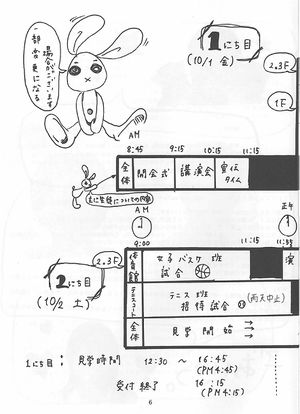 一部変更になる
場合がございます
1にち目
(10/1 金)
2.3F
1F
AM
8:45 9:15 10:15 11:15
全体 開会式 講演会 宣伝タイム
AM
正午
9:00 11:15 11:55
2.3F
体育館 女子バスケ班 試合 演
2にち目
(10/2 土)
テニスコート テニス班 招待試合 (雨天中止)
全体 見学開始 →
1にち目: 見学時間 12:30 〜 16:45
(PM 4:45)
受付終了 16:15
(PM 4:15)
6